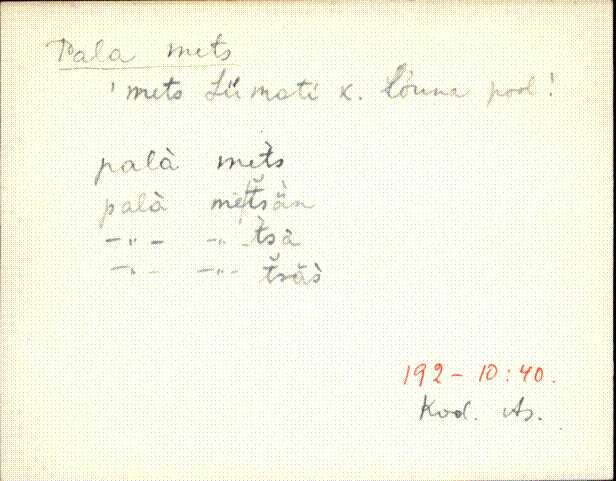 Pala mets
'mets Lümati k. lõuna pool'
palà met̀s
palà met̆sän
-"- -"- t̀sà
-"- -"- t̆säs̀
192-10:40.
Kod. As.